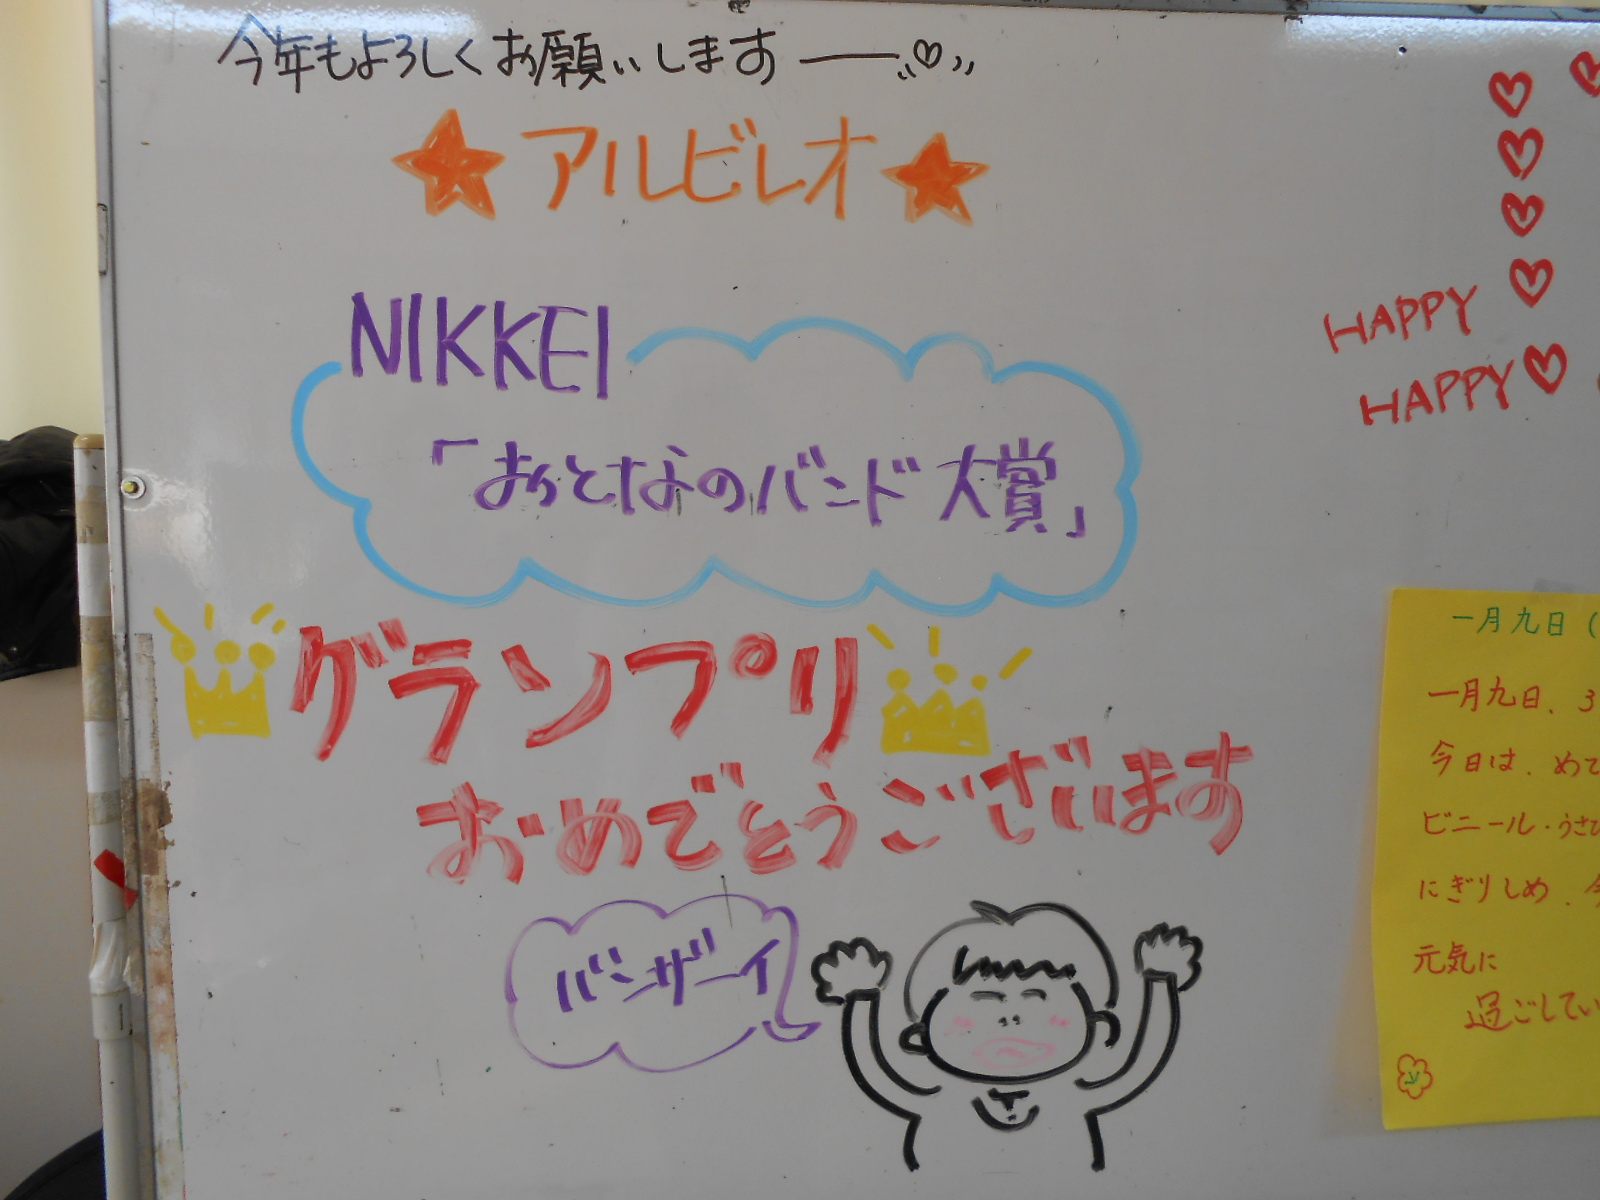 今年もよろしくお願いします――♡
★アルビレオ★
NIKKEI
「おとなのバンド大賞」
グランプリ
おめでとうございます
バンザーイ
HAPPY
HAPPY♡
一月九日(
一月九日、3
今日は、めで
ビニール・うさぴ
にぎりしめ、今
元気に
過ごしてい